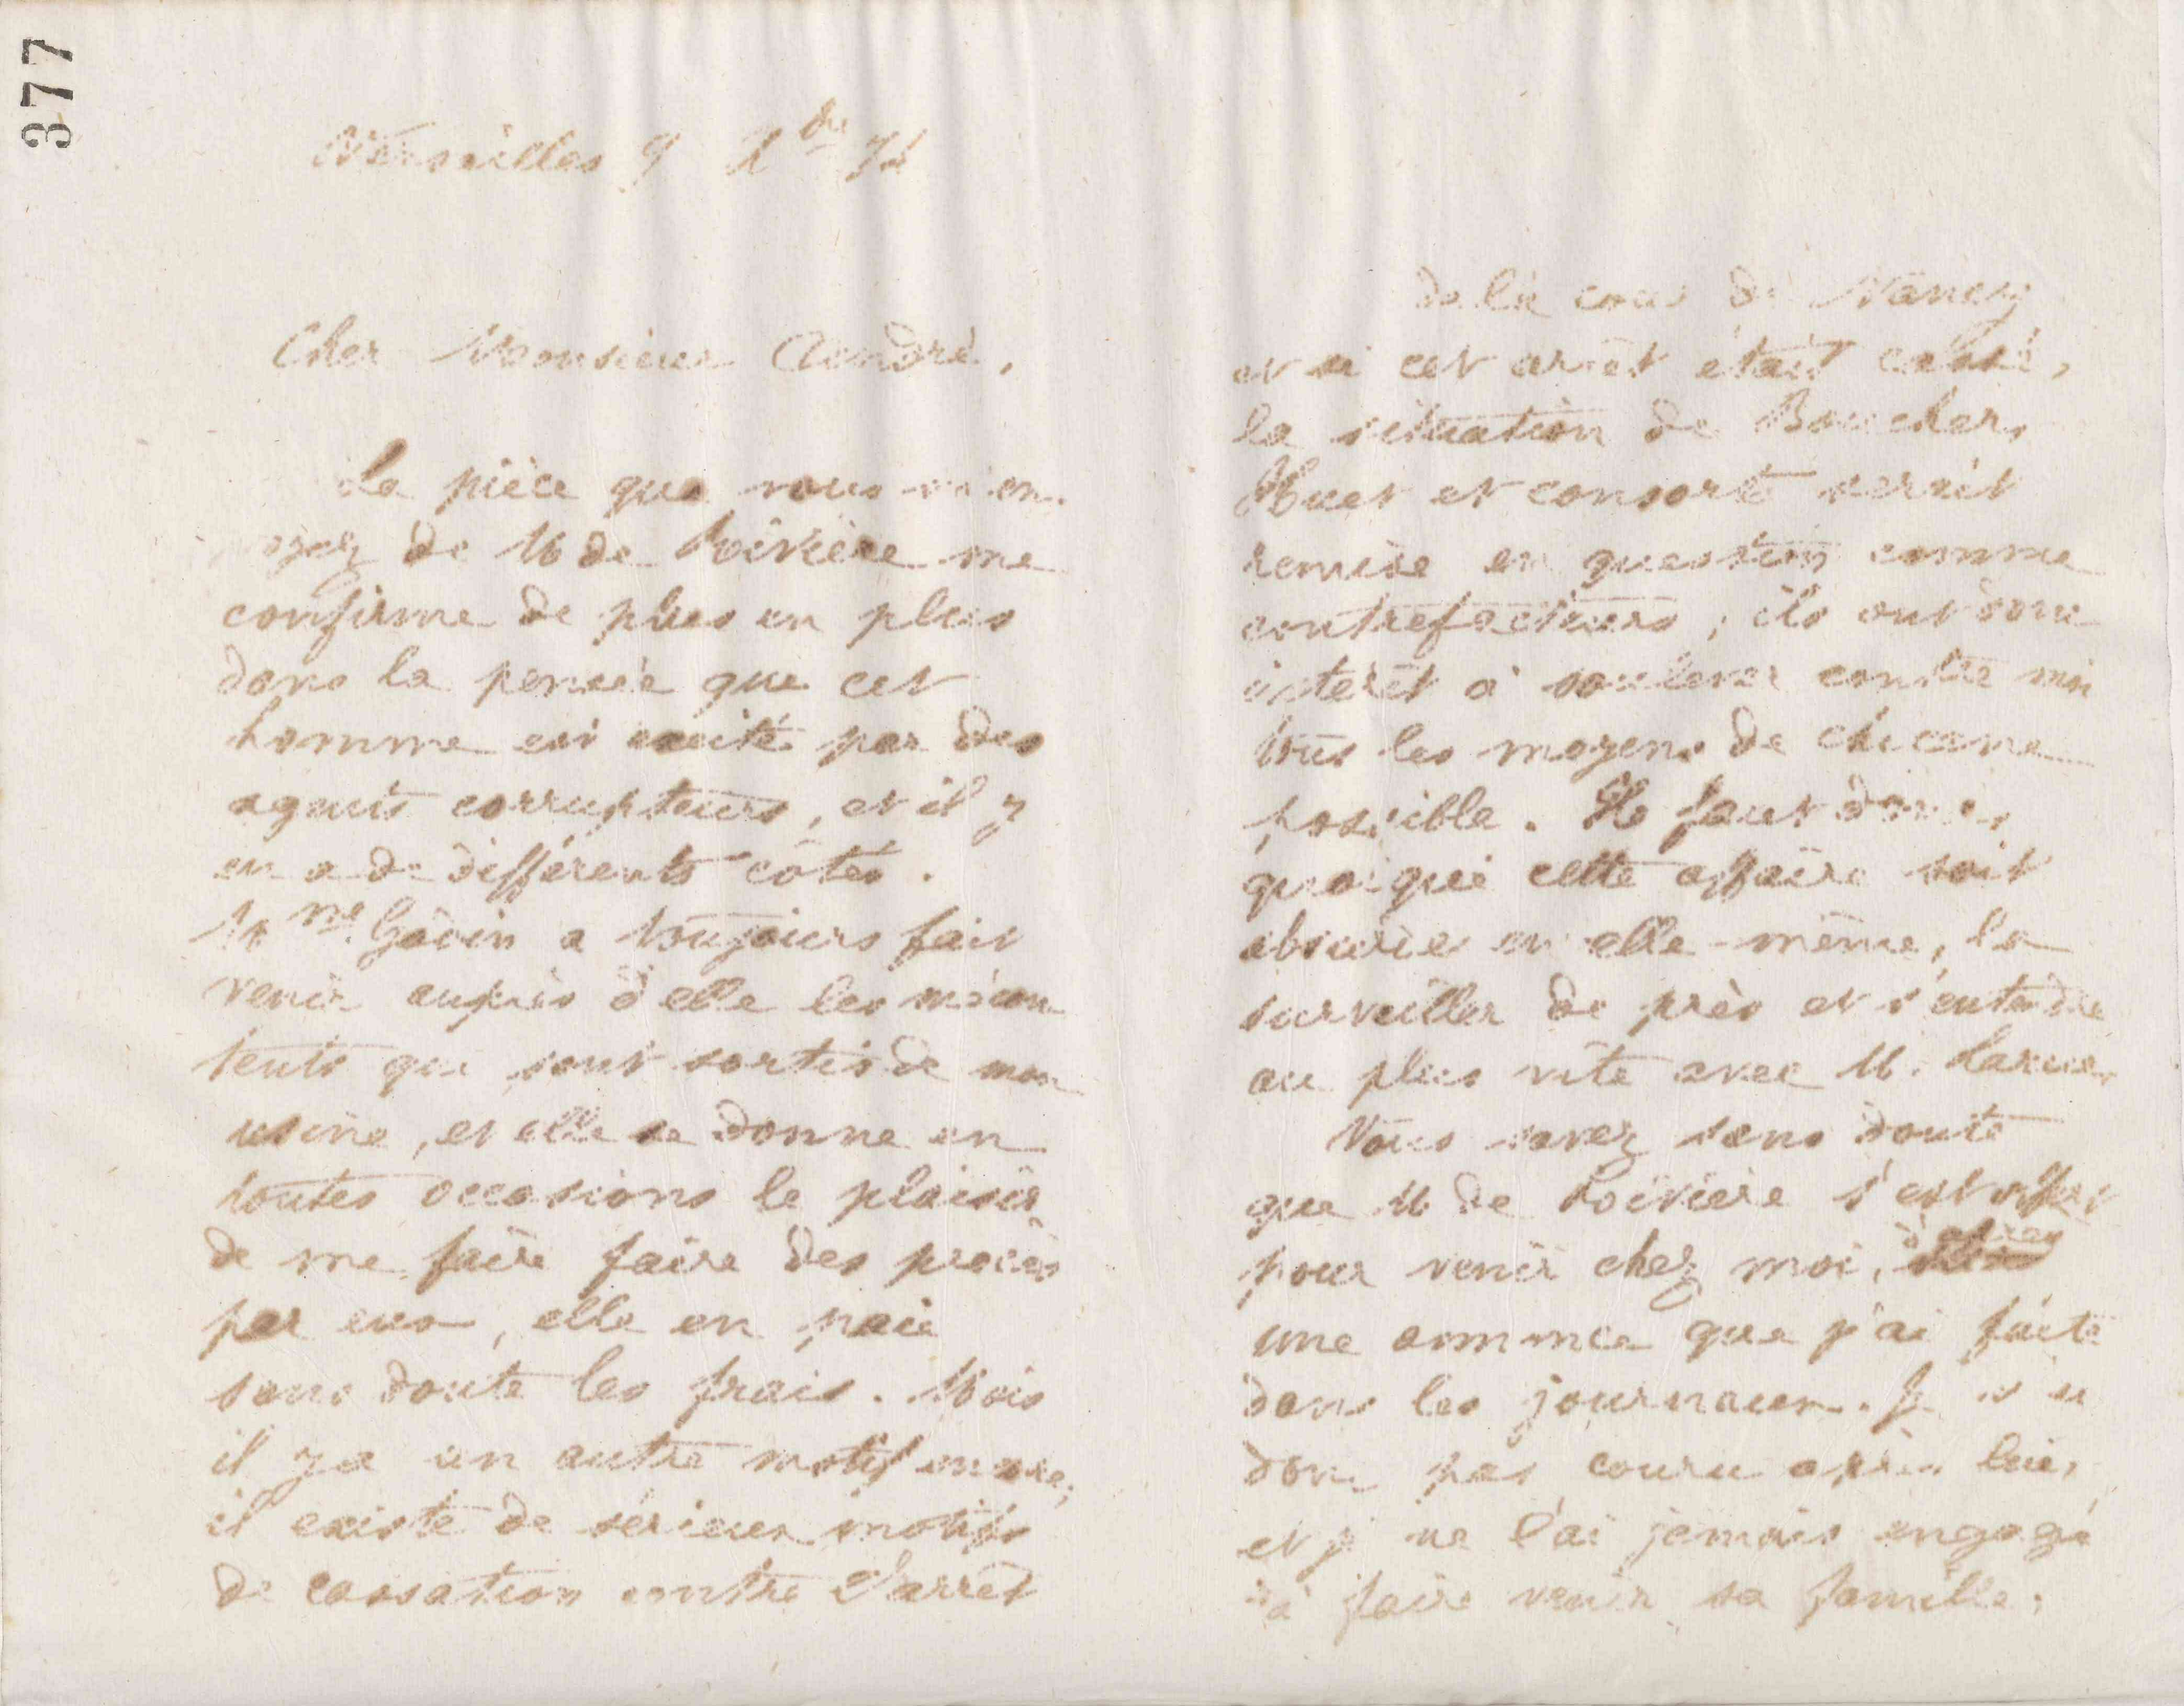 377
Versailles 9 Xbre 71
Cher Monsieur André,
La pièce que vous m'en-
voyez de M de Poivière me
confirme de plus en plus
dans la pensée que cet
homme est excité par des
agents corrupteurs, et il y
en a de différents côtés.
Mme Godin a toujours fait
venir auprès d'elle les mécon
tents qui sont sortis de mon
usine, et elle se donne en
toutes occasions le plaisir
de me faire faire des procès
par eux, elle en paie
sans doute les frais. Mais
il y a un autre motif encore;
il existe de sérieux motifs
de cassation contre l'arrêt
de la cour de Nancy
et si cet arrêt était cassé,
la situation de Boucher,
Huet et consorts serait
remise en question comme
contrefacteurs; ils ont donc
intérêt à soulever contre moi
tous les moyens de chicane
possible. Il faut donc,
quoique cette affaire soit
absurde en elle-même, la
surveiller de près et s'entendre
au plus vite avec M. Larue.
Vous savez sans doute
que M de Poivière s'est offert
pour venir chez moi, après
une annonce que j'ai faite
dans les journaux. Je n'ai
donc pas couru après lui,
et je ne l'ai jamais engagé
à faire venir sa famille;